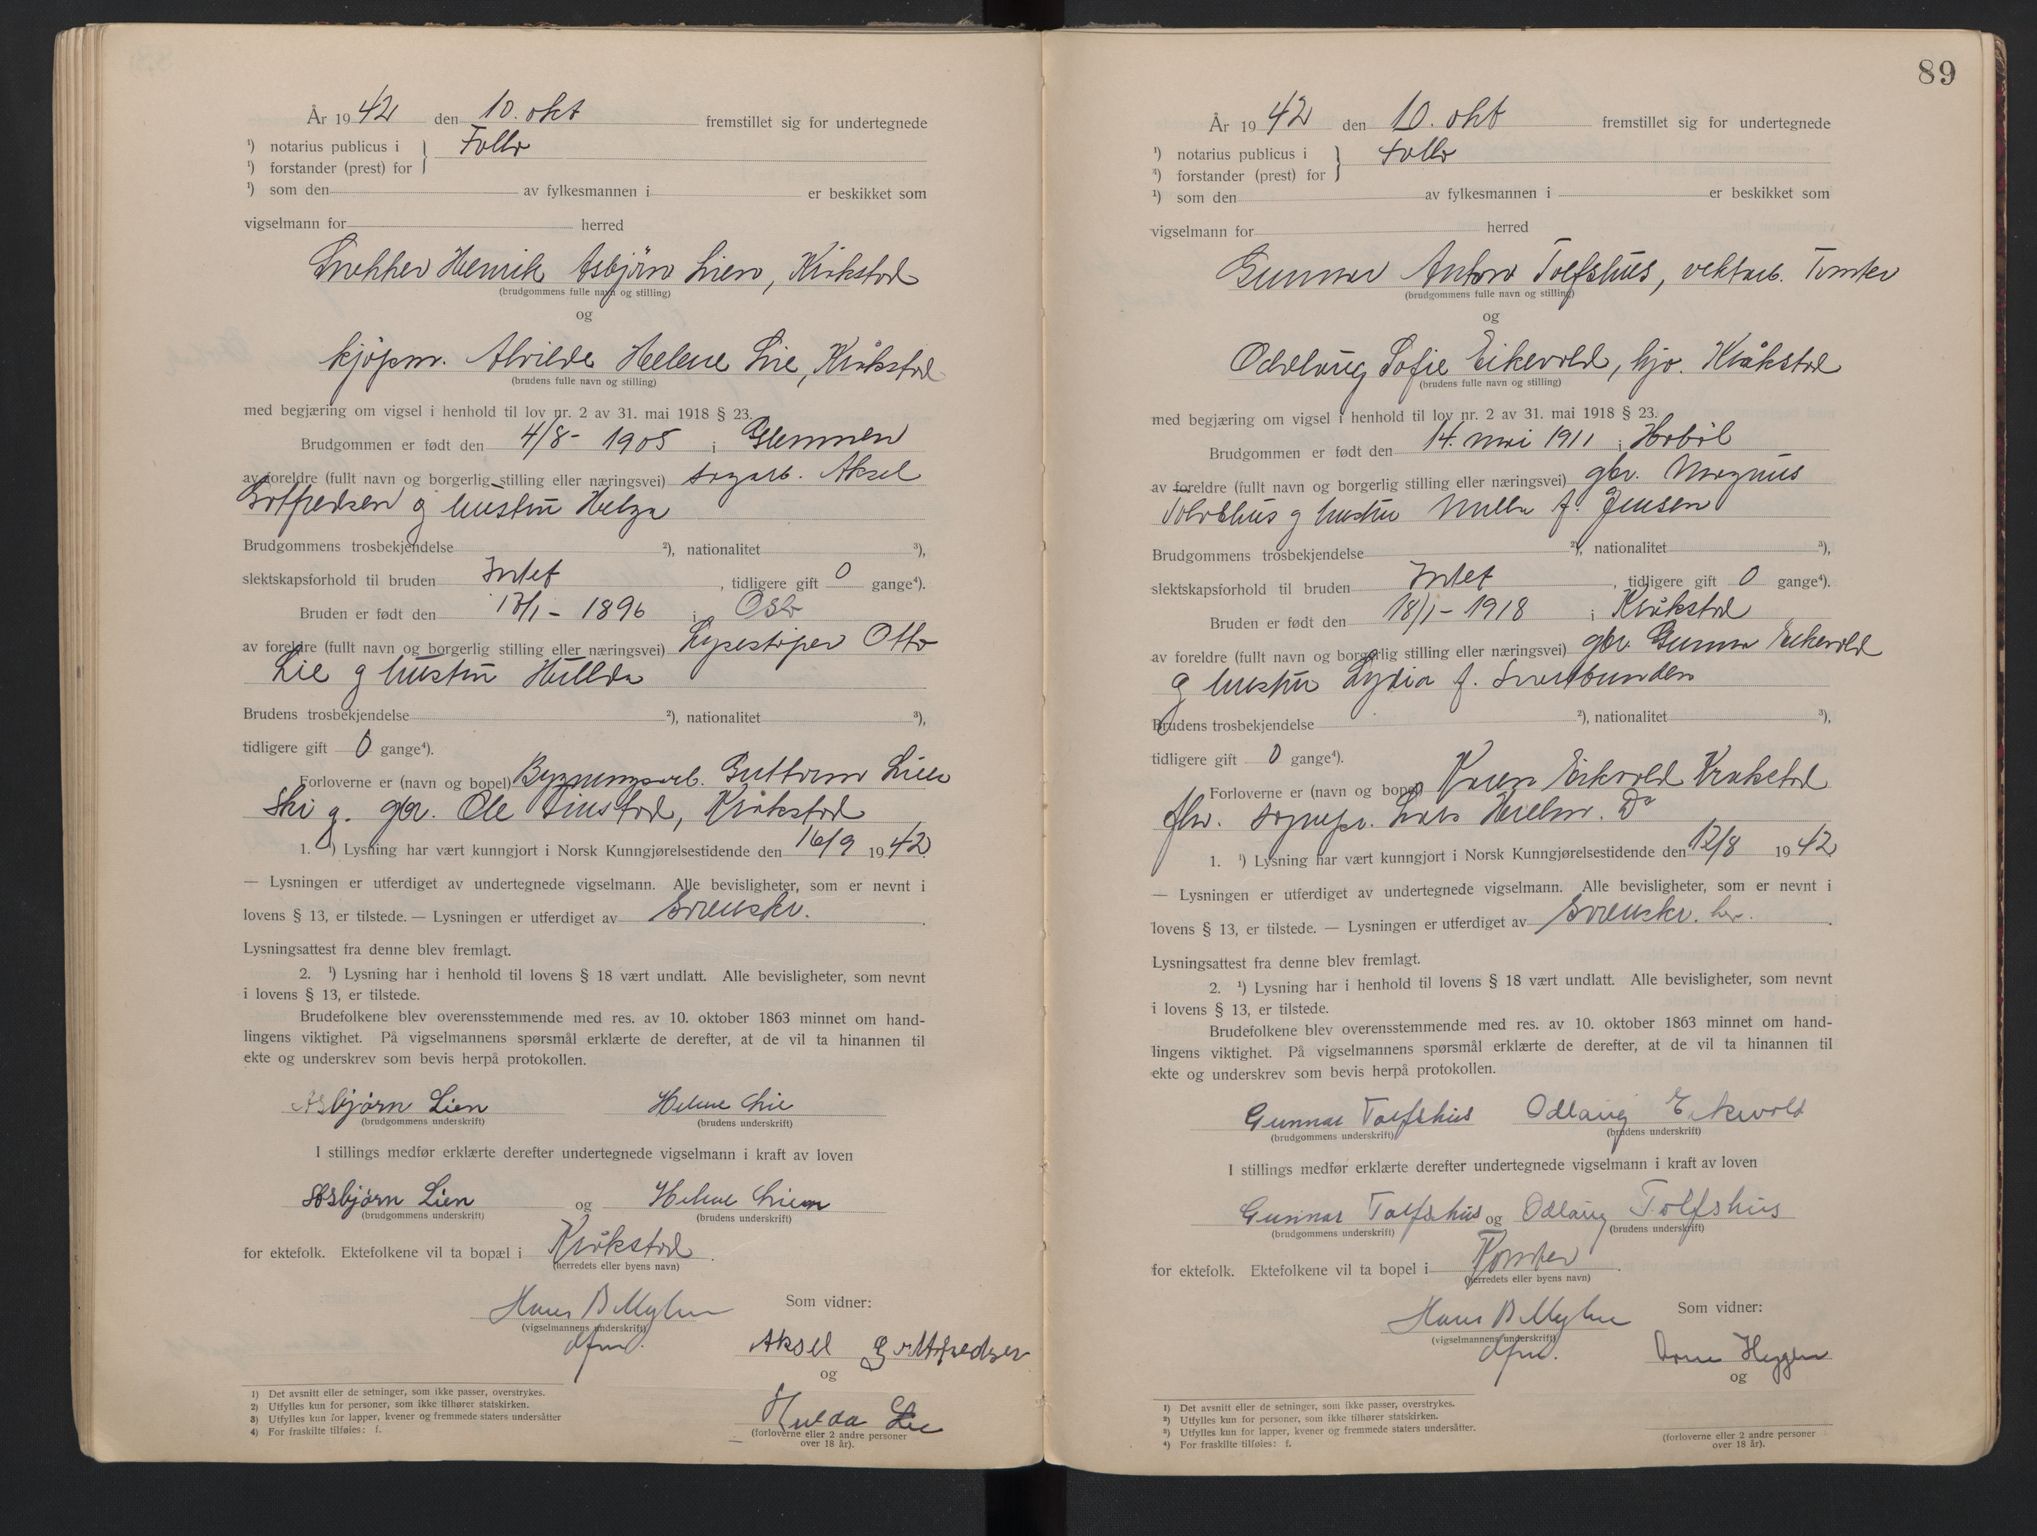 År 1942 den 10. okt fremstillet sig for undertegnede
¹) notarius publicus i Follo
¹) forstander (prest) for
¹) som den av fylkesmannen i er beskikket som
vigselmann for herred
Snekker Henrik Asbjörn Lien, Kråkstad
(brudgommens fulle navn og stilling)
og
kjöpm. Alvilde Helene Lie, Kråkstad
(brudens fulle navn og stilling)
med begjæring om vigsel i henhold til lov nr. 2 av 31. mai 1918 § 23.
Brudgommen er født den 4/8 - 1905 i Glemmen
av foreldre (fullt navn og borgerlig stilling eller næringsvei) sagarb. Aksel
Gotfredsen og hustru Helga
Brudgommens trosbekjendelse ²), nationalitet ³),
slektskapsforhold til bruden Intet, tidligere gift 0 gange⁴).
Bruden er født den /1 - 1896 i Oslo
av foreldre (fullt navn og borgerlig stilling eller næringsvei) Lysestöper Otto
Lie og hustru Hulda
Brudens trosbekjendelse ²), nationalitet ³),
tidligere gift 0 gange⁴).
Forloverne er (navn og bopel) Bygningsarb. Guttorm Lien
Ski og gbr. Ole Kråkstad
1. ¹) Lysning har vært kunngjort i Norsk Kunngjørelsestidende den 16/9 1942
— Lysningen er utferdiget av undertegnede vigselmann. Alle bevisligheter, som er nevnt i
lovens § 13, er tilstede. — Lysningen er utferdiget av sorenskr.
Lysningsattest fra denne blev fremlagt.
2. ¹) Lysning har i henhold til lovens § 18 vært undlatt. Alle bevisligheter, som nevnt
i lovens § 13, er tilstede.
Brudefolkene blev overensstemmende med res. av 10. oktober 1863 minnet om hand-
lingens viktighet. På vigselmannens spørsmål erklærte de derefter, at de vil ta hinannen til
ekte og underskrev som bevis herpå protokollen.
Asbjørn Lien Helene Lie
(brudgommens underskrift) (brudens underskrift)
I stillings medfør erklærte derefter undertegnede vigselmann i kraft av loven
Asbjørn Lien og Helene Lien
(brudgommens underskrift) (brudens underskrift)
for ektefolk. Ektefolkene vil ta bopæl i Kråkstad.
(herredets eller byens navn)
Hans B Myhre Som vidner:
(vigselmannens underskrift)
Aksel Gottfredsen
og
Hulda Lie
(forloverne eller 2 andre personer
over 18 år).
1) Det avsnitt eller de setninger, som ikke passer, overstrykes.
2) Utfylles kun for personer, som ikke tilhører statskirken.
3) Utfylles kun for lapper, kvener og fremmede staters undersåtter
4) For fraskilte tilføies: f.
89
År 1942 den 10. okt fremstillet sig for undertegnede
¹) notarius publicus i Follo
¹) forstander (prest) for
¹) som den av fylkesmannen i er beskikket som
vigselmann for herred
Gunnar Anton Tolfshus, vektarb. Tomter
(brudgommens fulle navn og stilling)
og
Oddlaug Sofie Eikevold, hjv. Kråkstad
(brudens fulle navn og stilling)
med begjæring om vigsel i henhold til lov nr. 2 av 31. mai 1918 § 23.
Brudgommen er født den 14. mai 1911 i Hobøl
av foreldre (fullt navn og borgerlig stilling eller næringsvei) gbr. Magnus
Tolvshus og hustru f. Jensen
Brudgommens trosbekjendelse ²), nationalitet ³),
slektskapsforhold til bruden Intet, tidligere gift 0 gange⁴).
Bruden er født den 18/1 - 1918 i Kråkstad
av foreldre (fullt navn og borgerlig stilling eller næringsvei) gbr. Gunnar Eikevold
og hustru Lydia f.
Brudens trosbekjendelse ²), nationalitet ³),
tidligere gift 0 gange⁴).
Forloverne er (navn og bopel) Karen Eikvold Kråkstad
sognepr. Lars
1. ¹) Lysning har vært kunngjort i Norsk Kunngjørelsestidende den 12/8 1942
— Lysningen er utferdiget av undertegnede vigselmann. Alle bevisligheter, som er nevnt i
lovens § 13, er tilstede. — Lysningen er utferdiget av sorenskr. her.
Lysningsattest fra denne blev fremlagt.
2. ¹) Lysning har i henhold til lovens § 18 vært undlatt. Alle bevisligheter, som nevnt
i lovens § 13, er tilstede.
Brudefolkene blev overensstemmende med res. av 10. oktober 1863 minnet om hand-
lingens viktighet. På vigselmannens spørsmål erklærte de derefter, at de vil ta hinannen til
ekte og underskrev som bevis herpå protokollen.
Gunnar Tolfshus Odlaug Eikevold
(brudgommens underskrift) (brudens underskrift)
I stillings medfør erklærte derefter undertegnede vigselmann i kraft av loven
Gunnar Tolfshus og Odlaug Tolfshus
(brudgommens underskrift) (brudens underskrift)
for ektefolk. Ektefolkene vil ta bopel i Tomter.
(herredets eller byens navn)
Hans B Myhre Som vidner:
(vigselmannens underskrift)
Heggen
og
(forloverne eller 2 andre personer
over 18 år).
¹) Det avsnitt eller de setninger, som ikke passer, overstrykes.
²) Utfylles kun for personer, som ikke tilhører statskirken.
³) Utfylles kun for lapper, kvener og fremmede staters undersåtter.
⁴) For fraskilte tilføies: f.